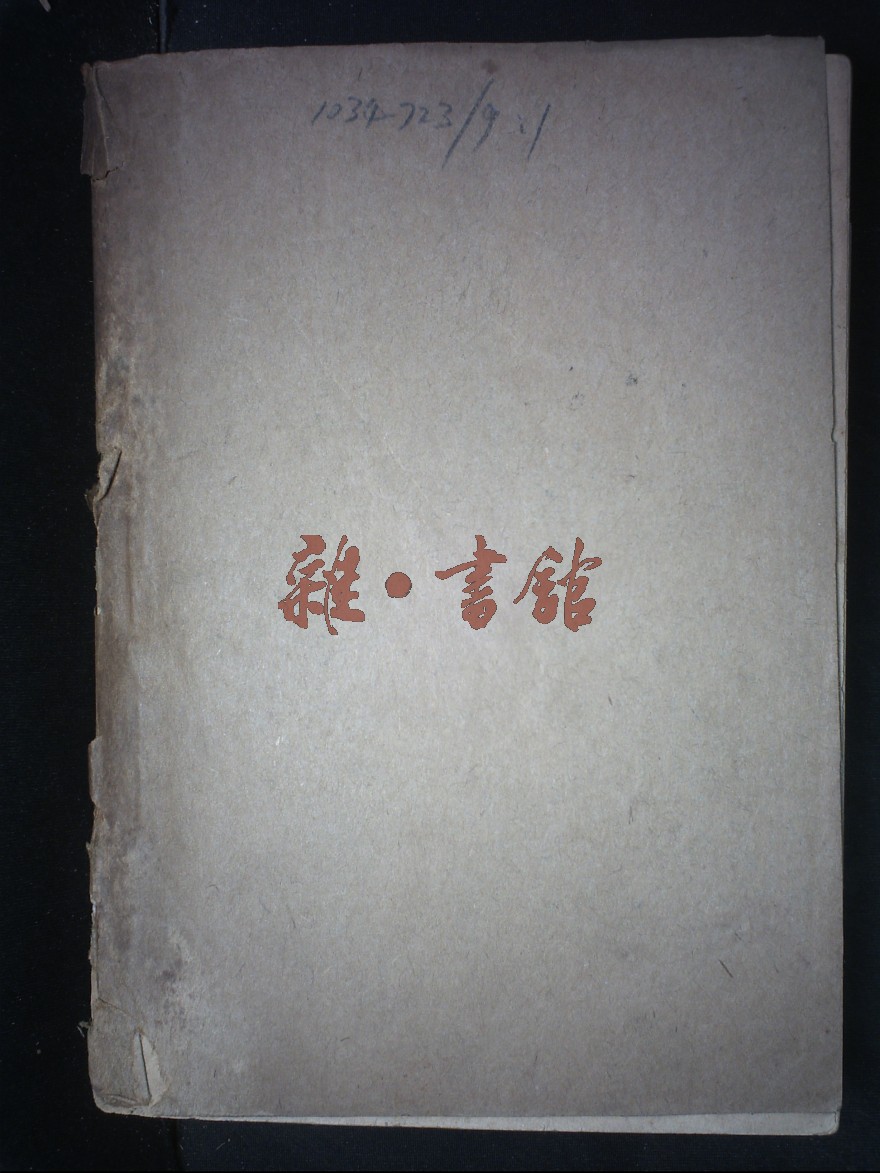 1034-723/9:1
雜·書館